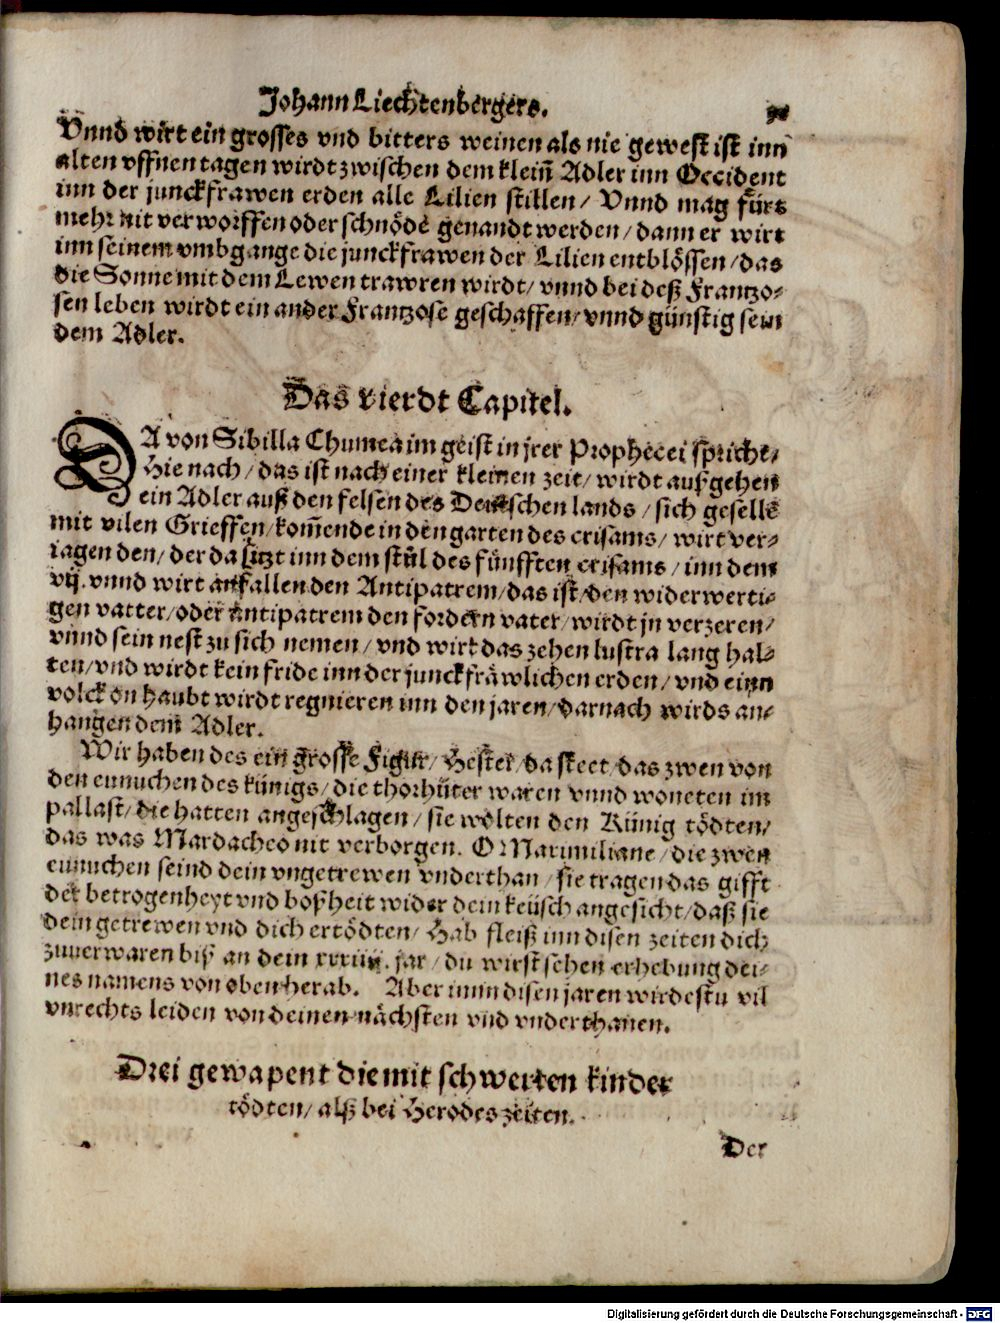 Johann Liechtenbergers.
Vnnd wirt ein grosses vnd bitters weinen als nie gewest ist inn
alten vffnen tagen wirdt zwischen dem kleiñ Adler inn Occident
inn der junckfrawen erden alle Lilien stillen / Vnnd mag fürs
mehr nit verworffen oder schnöde genandt werden / dann er wirt
inn seinem vmbgange die junckfrawen der Lilien entblössen / das
die Sonne mit dem Lewen trawren wirdt / vnnd bei deß Frantzo-
sen leben wirdt ein ander Frantzose geschaffen / vnnd günstig sein
dem Adler.
Das vierdt Capitel.
DA von Sibilla Chumea im geist in jrer Prophecei spricht /
Hie nach / das ist nach einer kleinen zeit / wirdt außgehen
ein Adler auß den felsen des Deutschen lands / sich geselle
mit vilen Grieffen / kom̃ende in den garten des crisams / wirt ver-
iagen den / der da sitzt inn dem stůl des fünfften crisams / inn dem
vij. vnnd wirt anfallen den Antipatrem / das ist / den widerwerti-
gen vatter / oder Antipatrem den fordern vater / wirdt jn verzeren /
vnnd sein nest zu sich nemen / vnd wirt das zehen lustra lang hal-
ten / vnd wirdt kein fride inn der junckfräwlichen erden / vnd einn
volck on haubt wirdt regnieren inn den jaren / darnach wirds an-
hangen dem Adler.
Wir haben des ein grosse Figur / Hester / da steet / das zwen von
den eunuchen des künigs / die thorhüter waren vnnd woneten im
pallast / die hatten angeschlagen / sie wolten den Künig tödten /
das was Mardacheo nit verborgen. O Maximiliane / die zwen
eunuchen seind dein vngetrewen vnderthan / sie tragen das gifft
der betrogenheyt vnd boßheit wider dein keüsch angesicht / daß sie
dein getrewen vnd dich ertödten / Hab fleiß inn disen zeiten dich
zuuerwaren biß an dein xxxiiij. jar / du wirst sehen erhebung dei-
nes namens von oben herab. Aber inn disen jaren wirdestu vil
vnrechts leiden von deinen nächsten vnd vnderthanen.
Drei gewapent die mit schwerten kinder
tödten / alß bei Herodes zeiten.
Der
Digitalisierung gefördert durch die Deutsche Forschungsgemeinschaft - DFG